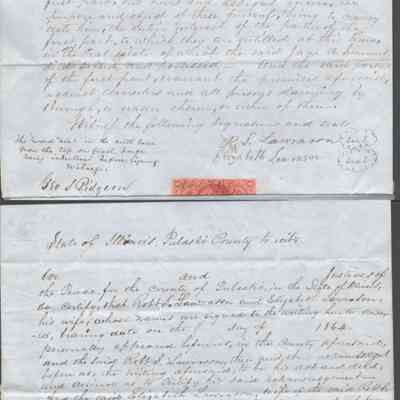 purpose and object of these presents, being to convey
unto him, the entire interest of the
first part, to which they are entitled at this time
in the real estate of which the said Page A.
And the said parties
of the first part, warrant the premises aforesaid,
against themselves and all persons claiming by
through, or under them, or either of them.
Witness the following signatures and seals
The word "due" in the ninth line
from the top on first page
being interlined before signing
Witness.
R. S. Lawrason seal
Elizabeth Lawrason seal
Geo S Pidgeon
State of Illinois, Pulaski County to wit:
We and Justices of
the Peace for the County of Pulaski, in the State of Illinois,
do certify, that Robt S. Lawrason and Elizabeth Lawrason,
his wife, whose names are signed to the writing hereto annex-
ed, bearing date on the day of 1864.
personally appeared before us, in the County aforesaid,
and the said Robt S. Lawrason, then and there acknowledged
before us, the writing aforesaid, to be his act and deed,
and desired us to certify his said acknowledgement
And the said Elizabeth Lawrason, wife of the said Robt